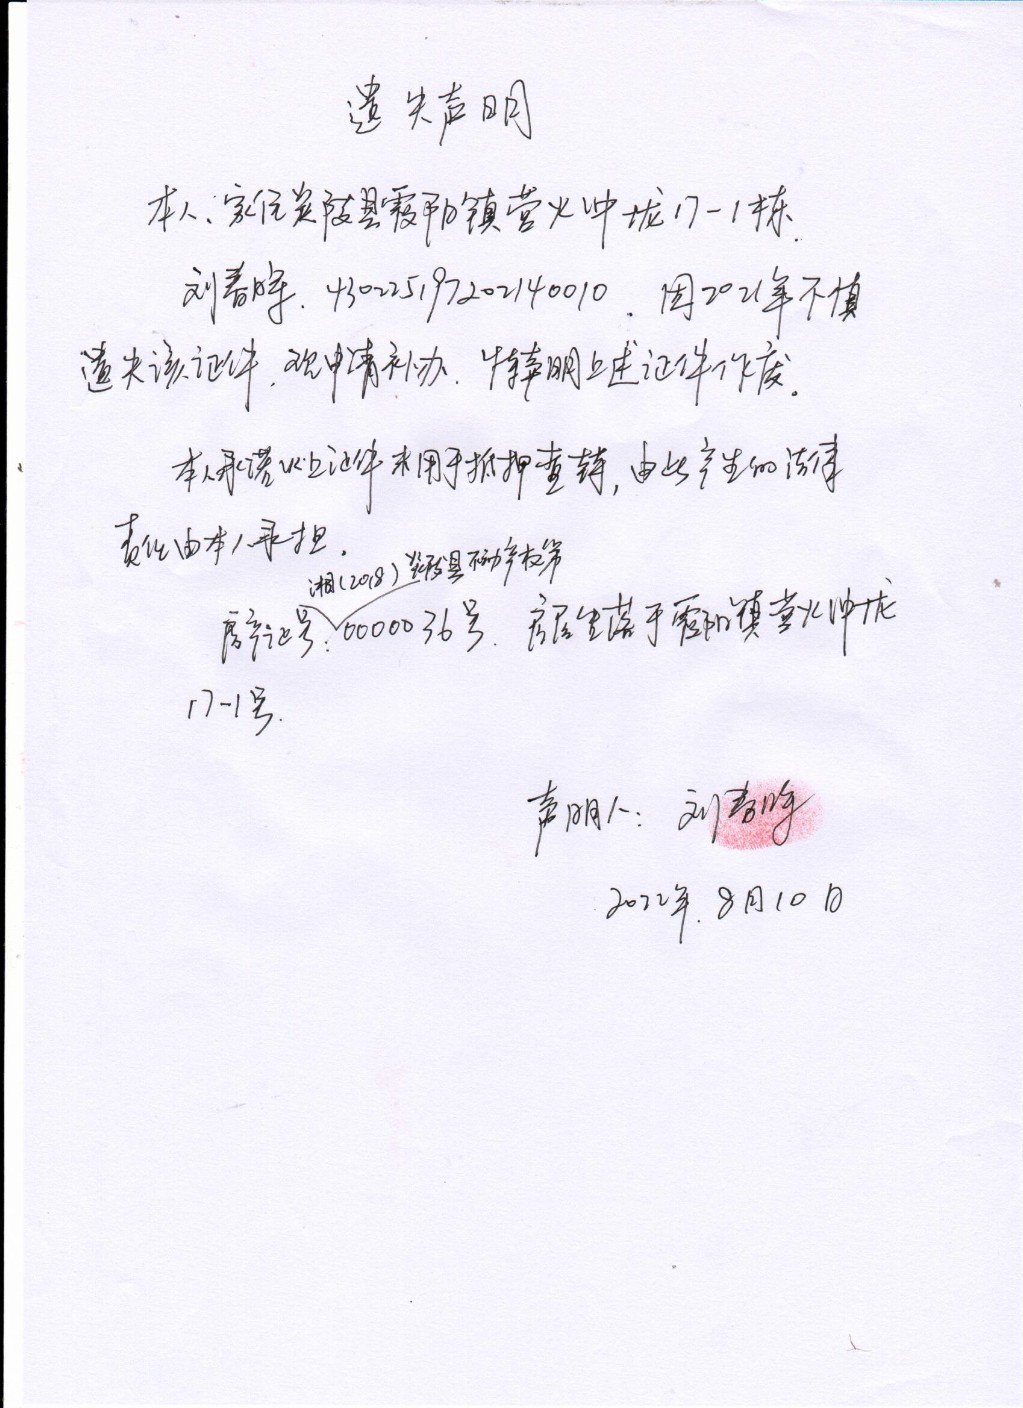 遗失声明
本人:家住炎陵县霞阳镇营火冲垅17-1栋.
刘春晖.430225197202140010.因2021年不慎
遗失该证件.现申请补办.特声明上述证件作废.
本人承诺以上证件未用于抵押查封,由此产生的法律
责任由本人承担.
湘(2018)炎陵县不动产权第
房产证号:0000036号.房屋坐落于霞阳镇营火冲垅
17-1号.
声明人:刘春晖
2022年.8月10日